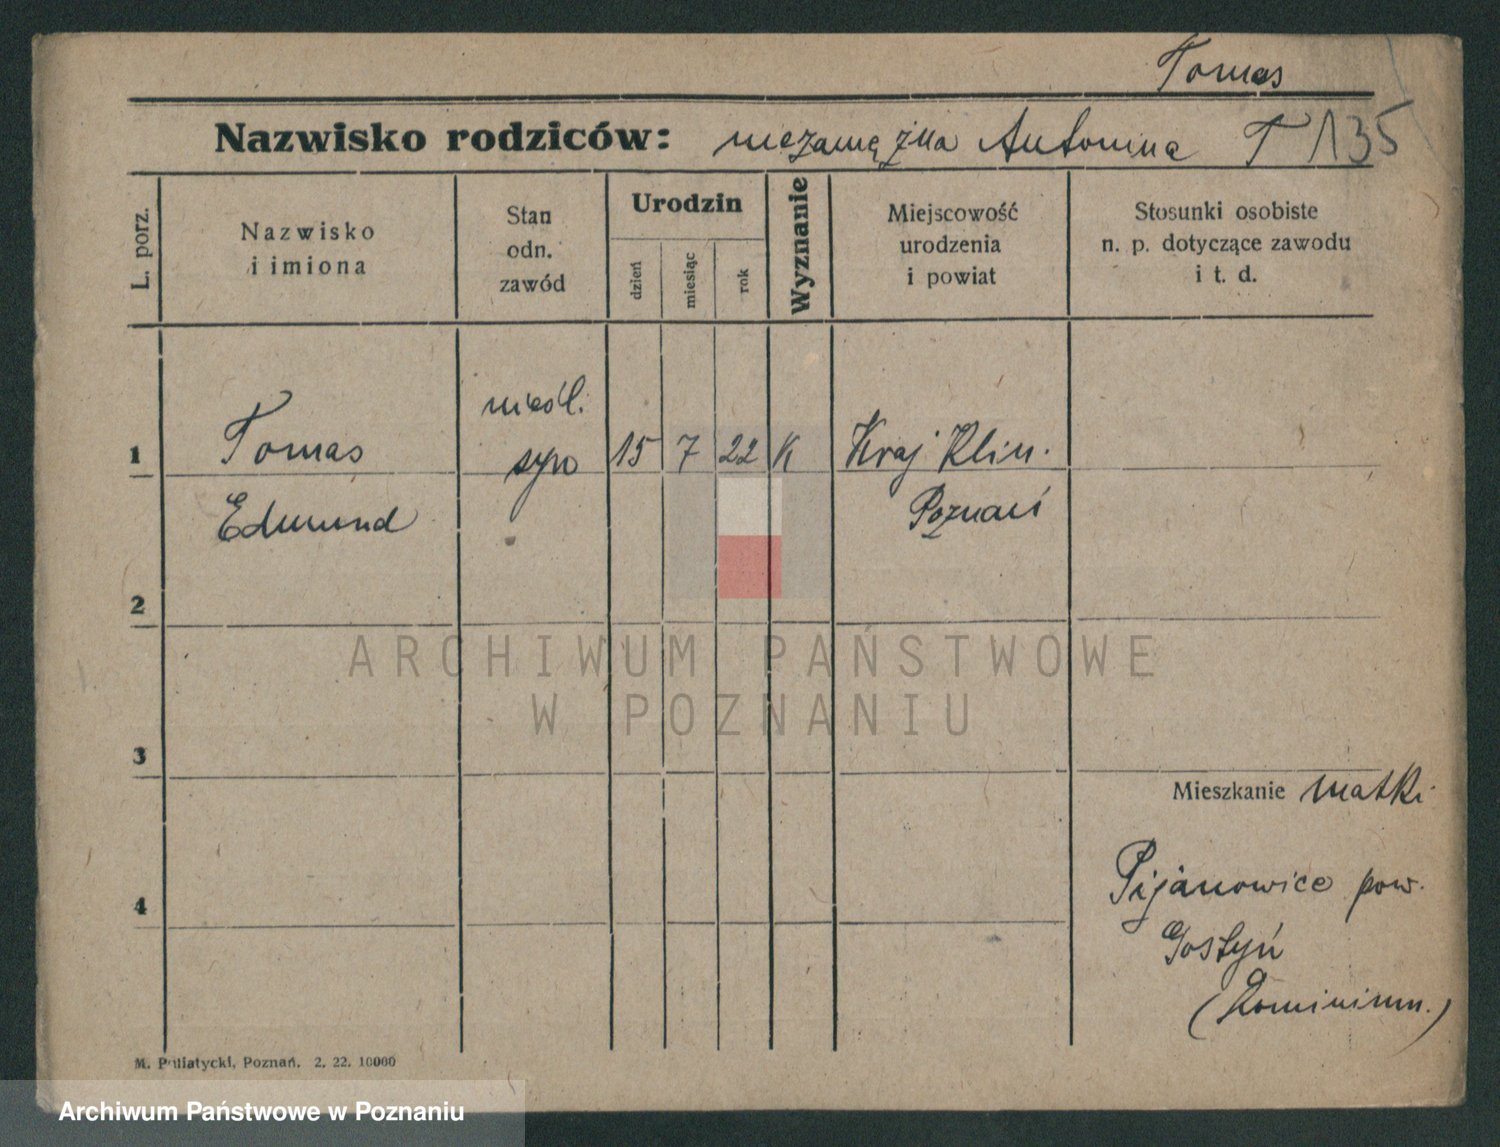 Tomas
Nazwisko rodziców: niezamężna Antonina T 135
L. porz.
Nazwisko i imiona
Stan odn. zawód
Urodzin
dzień
miesiąc
rok
Wyznanie
Miejscowość urodzenia i powiat
Stosunki osobiste n. p. dotyczące zawodu i t. d.
nieśl.
1 Tomas syn 15 7 22 K Kraj Klin.
Edmund Poznań
2
ARCHIWUM PAŃSTWOWE
W POZNANIU
3
Mieszkanie matki
Pijanowice pow.
4
Gostyń
(Dominium.)
M. Putiatycki, Poznań. 2. 22. 10000
Archiwum Państwowe w Poznaniu